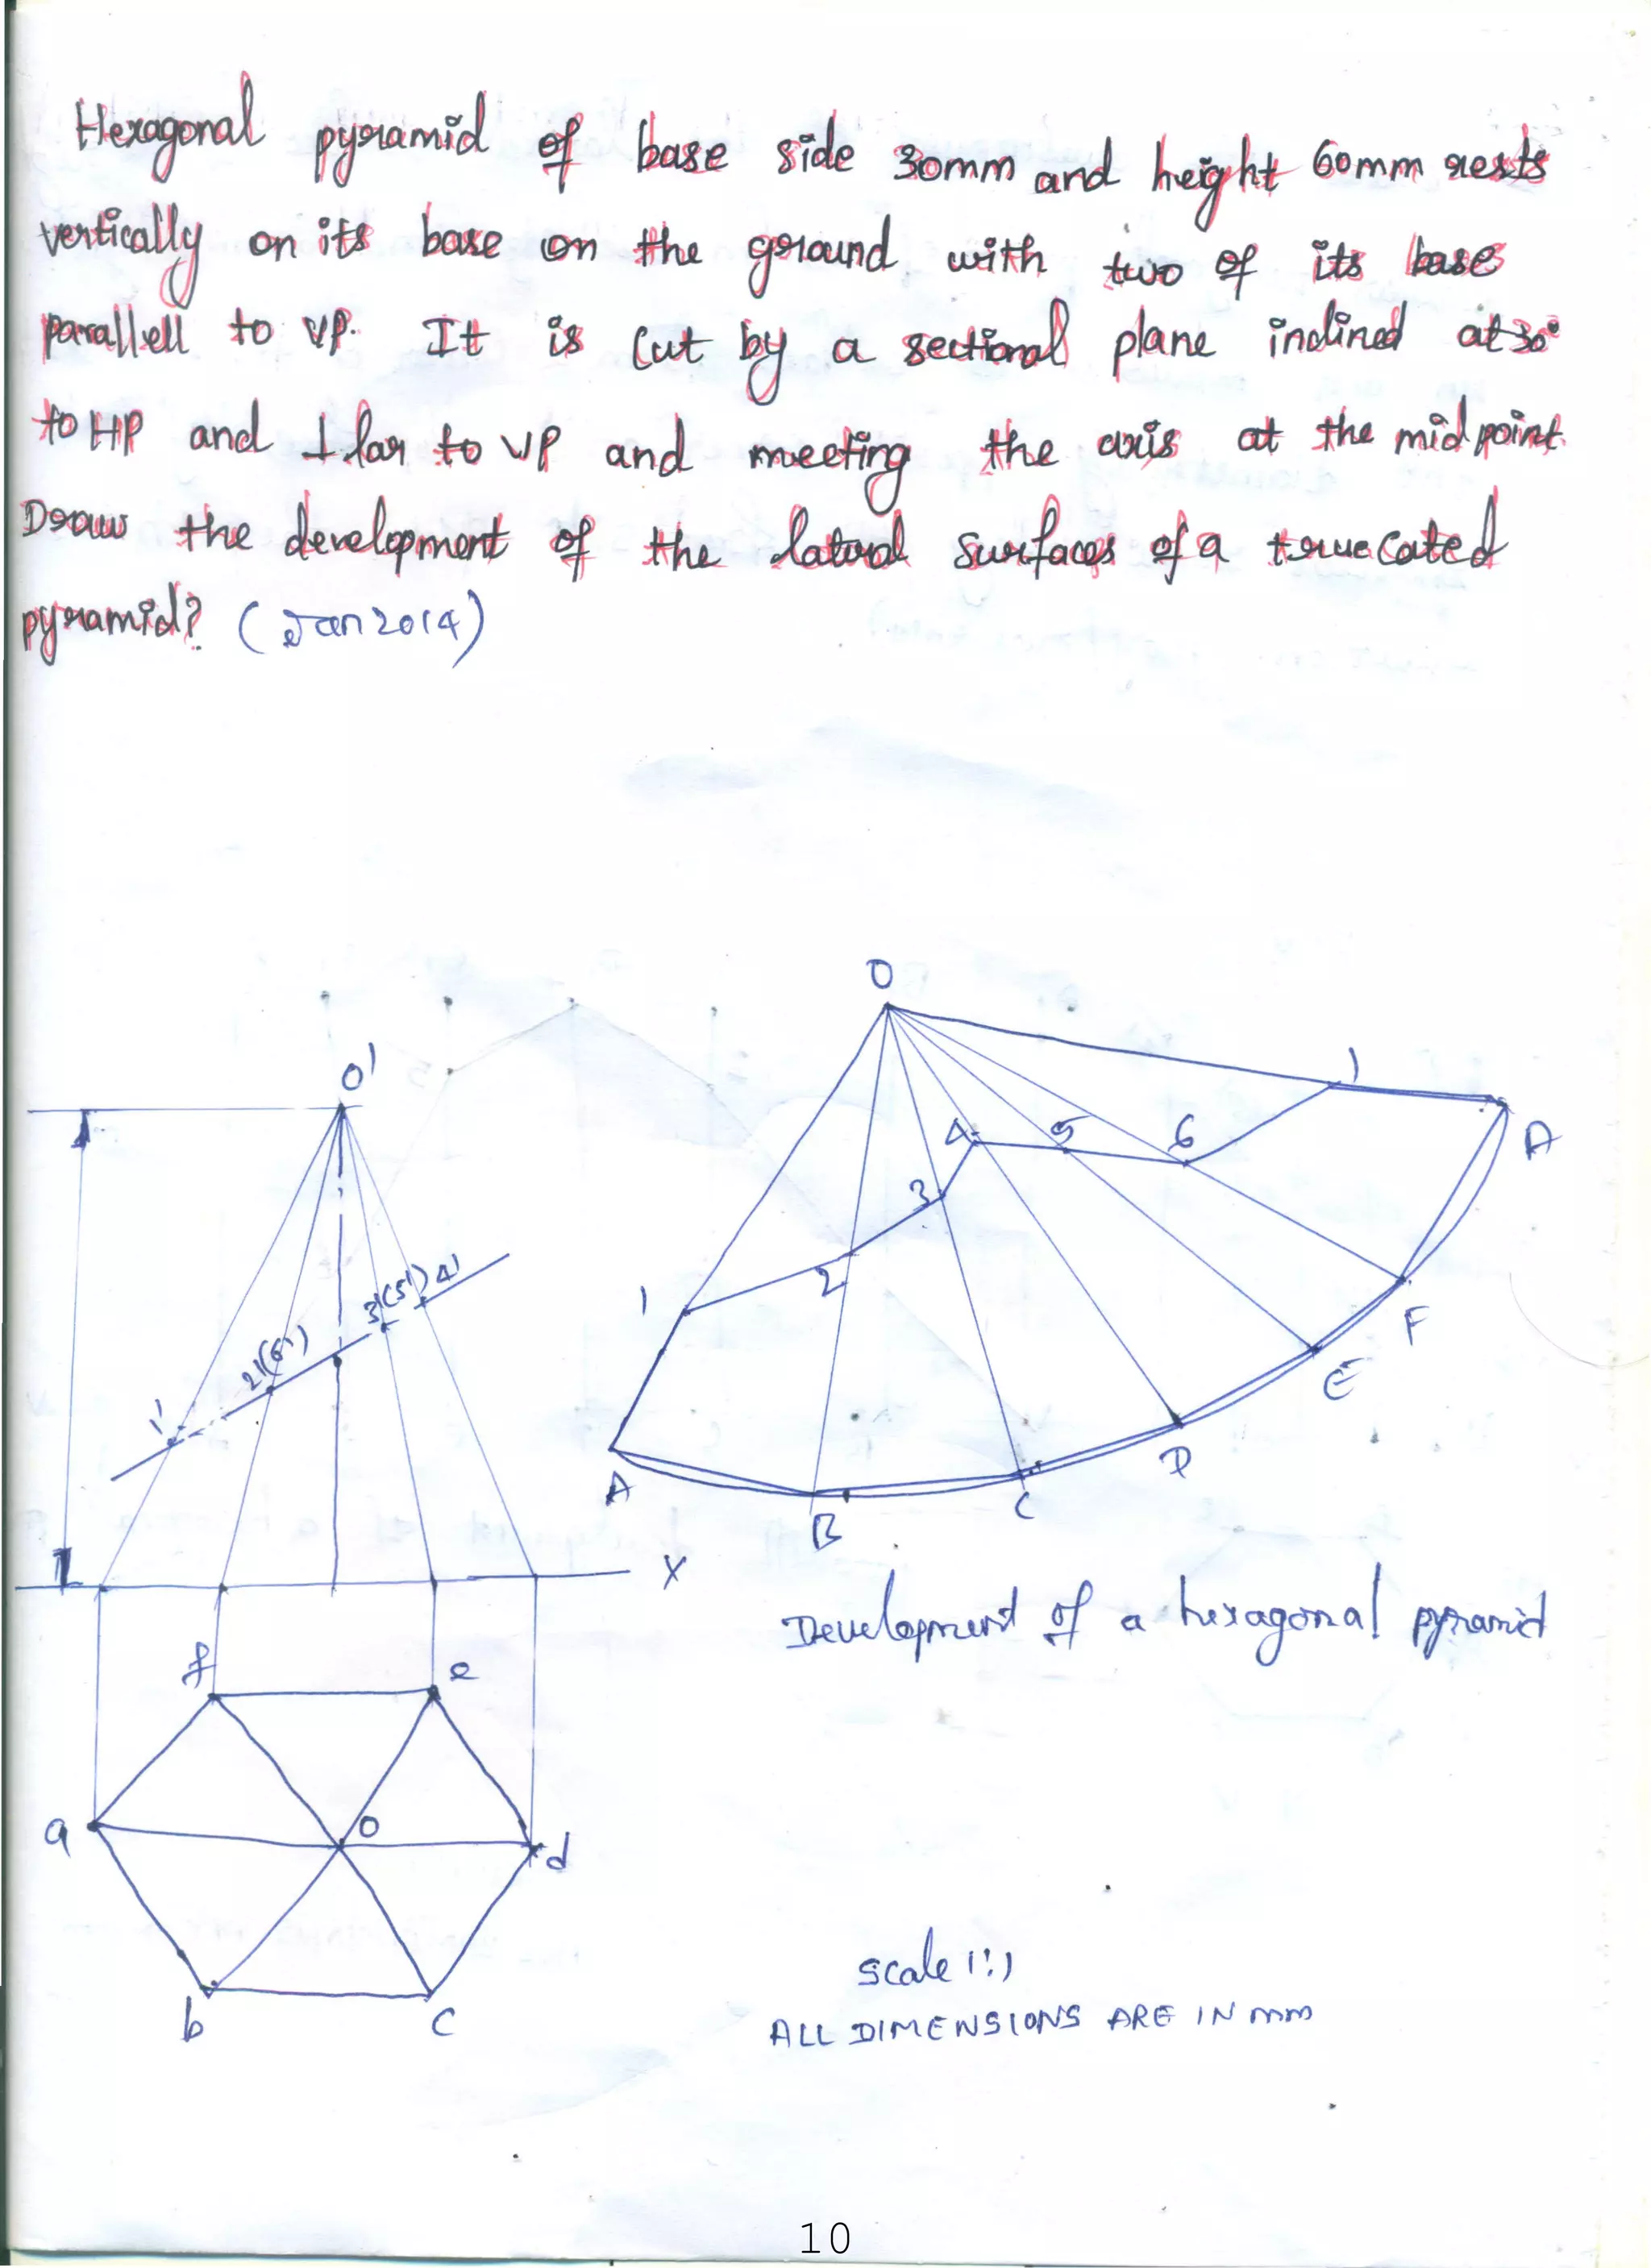 Hexagonal pyramid of base side 30mm and height 60mm rests
vertically on its base on the ground with two of its base
parallell to VP. It is cut by a sectional plane inclined at 30°
to HP and ⊥lar to VP and meeting the axis at the midpoint.
Draw the development of the lateral surfaces of a truncated
pyramid? (Jan 2014)
O
O'
1
A
4
5
6
3
2
1
3'(5') 4'
2'(6')
1'
F
E
D
A
C
B
X
Development of a hexagonal pyramid
f
e
a
o
d
b
c
Scale 1:1
ALL DIMENSIONS ARE IN mm
10